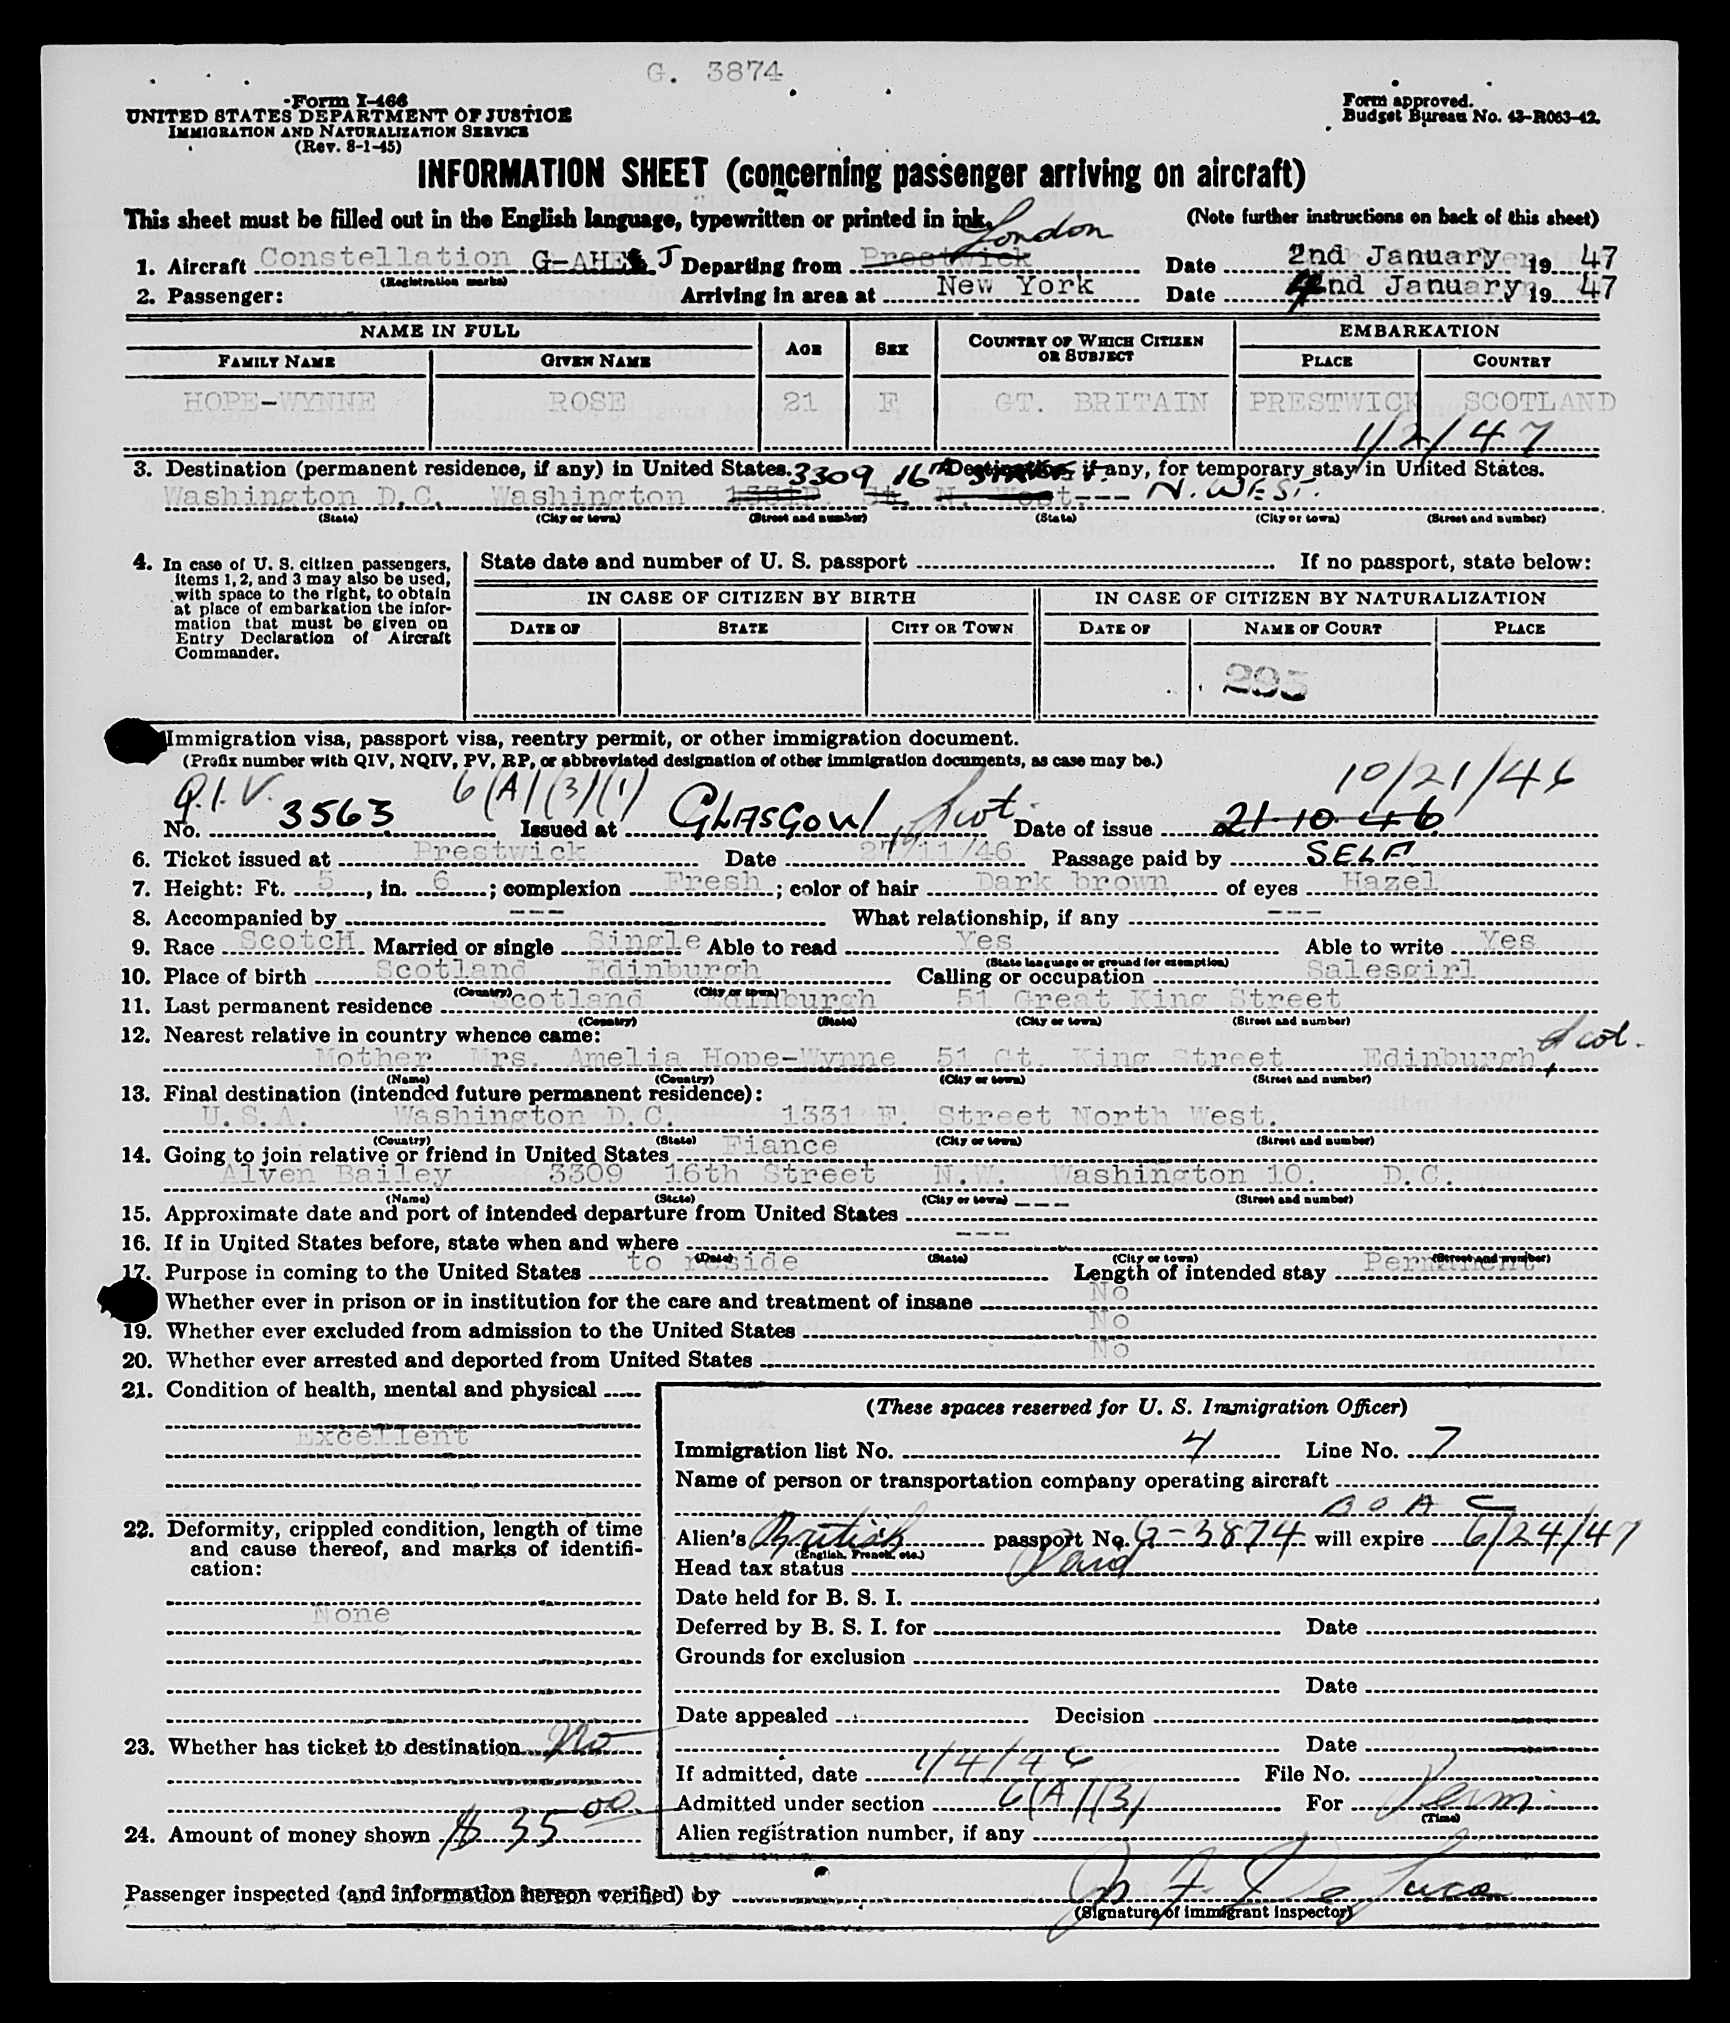 G. 3874
Form I-466
UNITED STATES DEPARTMENT OF JUSTICE
IMMIGRATION AND NATURALIZATION SERVICE
(Rev. 8-1-45)
Form approved.
Budget Bureau No. 43-R063-42.
INFORMATION SHEET (concerning passenger arriving on aircraft)
This sheet must be filled out in the English language, typewritten or printed in ink.
(Note further instructions on back of this sheet)
London
1. Aircraft Constellation G-AHE J Departing from Prestwick Date 2nd January 1947
(Registration marks)
2. Passenger: Arriving in area at New York Date 4nd January 1947
NAME IN FULL AGE SEX COUNTRY OF WHICH CITIZEN OR SUBJECT EMBARKATION
FAMILY NAME GIVEN NAME PLACE COUNTRY
HOPE-WYNNE ROSE 21 F GT. BRITAIN PRESTWICK SCOTLAND
1/2/47
3. Destination (permanent residence, if any) in United States. 3309 16th Destination, if any, for temporary stay in United States.
Washington D.C. Washington St. N. West.--- N. WEST.
(State) (City or town) (Street and number) (State) (City or town) (Street and number)
4. In case of U. S. citizen passengers, items 1, 2, and 3 may also be used, with space to the right, to obtain at place of embarkation the information that must be given on Entry Declaration of Aircraft Commander.
State date and number of U. S. passport If no passport, state below:
IN CASE OF CITIZEN BY BIRTH IN CASE OF CITIZEN BY NATURALIZATION
DATE OF STATE CITY OR TOWN DATE OF NAME OF COURT PLACE
295
Immigration visa, passport visa, reentry permit, or other immigration document.
(Prefix number with QIV, NQIV, PV, RP, or abbreviated designation of other immigration documents, as case may be.)
Q.I.V. 6(A)(3)(1) 10/21/46
No. 3563 Issued at GLASGOW, Scot. Date of issue 21-10-46
6. Ticket issued at Prestwick Date 27/11/46 Passage paid by SELF
7. Height: Ft. 5, in. 6; complexion Fresh; color of hair Dark brown of eyes Hazel
8. Accompanied by --- What relationship, if any ---
9. Race ScotcH Married or single Single Able to read Yes Able to write Yes
(State language or ground for exemption)
10. Place of birth Scotland Edinburgh Calling or occupation Salesgirl
(Country) (City or town)
11. Last permanent residence Scotland Edinburgh 51 Great King Street
(Country) (State) (City or town) (Street and number)
12. Nearest relative in country whence came:
Mother Mrs. Amelia Hope-Wynne 51 Gt. King Street Edinburgh, Scot.
(Name) (Country) (City or town) (Street and number)
13. Final destination (intended future permanent residence):
U.S.A. Washington D.C. 1331 F. Street North West.
(Country) (State) (City or town) (Street and number)
14. Going to join relative or friend in United States Fiance
Alven Bailey 3309 16th Street N.W. Washington 10. D.C.
(Name) (State) (City or town) (Street and number)
15. Approximate date and port of intended departure from United States ---
16. If in United States before, state when and where ---
(Date) (State) (City or town) (Street and number)
17. Purpose in coming to the United States to reside Length of intended stay Permanent
Whether ever in prison or in institution for the care and treatment of insane No
19. Whether ever excluded from admission to the United States No
20. Whether ever arrested and deported from United States No
21. Condition of health, mental and physical
Excellent
22. Deformity, crippled condition, length of time and cause thereof, and marks of identification:
None
23. Whether has ticket to destination No
24. Amount of money shown $ 35 00
(These spaces reserved for U. S. Immigration Officer)
Immigration list No. 4 Line No. 7
Name of person or transportation company operating aircraft
B O A C
Alien's British passport No. G-3874 will expire 6/24/47
(English, French, etc.)
Head tax status Paid
Date held for B. S. I.
Deferred by B. S. I. for Date
Grounds for exclusion
Date
Date appealed Decision
Date
If admitted, date 1/4/46 File No.
Admitted under section 6(A)(3) For Perm.
(Time)
Alien registration number, if any
Passenger inspected (and information hereon verified) by De Luca
(Signature of immigrant inspector)